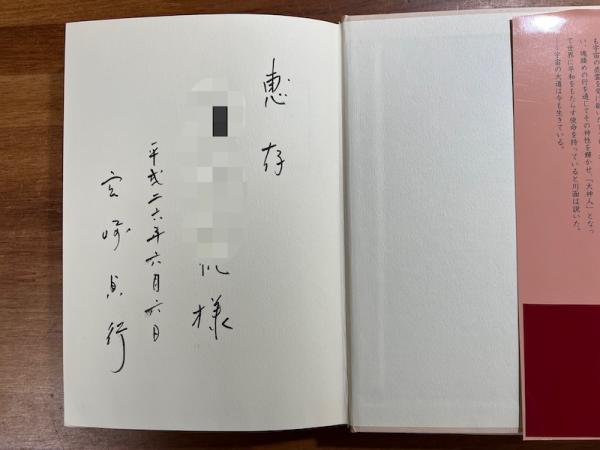 恵存
様
平成二六年六月六日
宮崎貞行
も宇宙の
い、魂鎮めの行を通じてその神性を輝かせ、「大神人」となっ
て世界に平和をもたらす使命を持っていると川面は説いた。
――宇宙の大道は今も生きている。